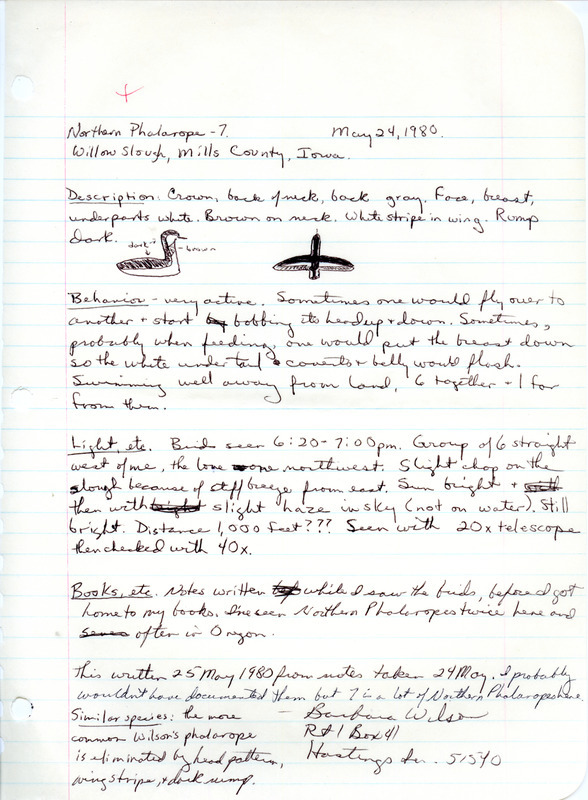 Northern Phalarope - 7. May 24, 1980.
Willow Slough, Mills County, Iowa.
Description: Crown, back of neck, back gray. Face, breast,
underparts white. Brown on neck. White stripe in wing. Rump
dark.
dark brown
Behavior - very active. Sometimes one would fly over to
another + start bobbing its head up + down. Sometimes,
probably when feeding, one would put the breast down
so the white undertail coverts + belly would flash.
Swimming well away from land, 6 together + 1 far
from them.
Light, etc. Birds seen 6:20-7:00pm. Group of 6 straight
west of me, the lone one northwest. Slight chop on the
slough because of stiff breeze from east. Sun bright +
then with slight haze in sky (not on water). Still
bright. Distance 1,000 feet??? Seen with 20x telescope
then checked with 40x.
Books, etc. Notes written while I saw the birds, before I got
home to my books. I've seen Northern Phalaropes twice here and
often in Oregon.
This written 25 May 1980 from notes taken 24 May. I probably
wouldn't have documented them but 7 is a lot of Northern Phalaropes here.
Similar species: the more - Barbara Wilson
common Wilson's phalarope Rt 1 Box 41
is eliminated by head pattern, Hastings Ia. 51540
wing stripe, + dark rump.